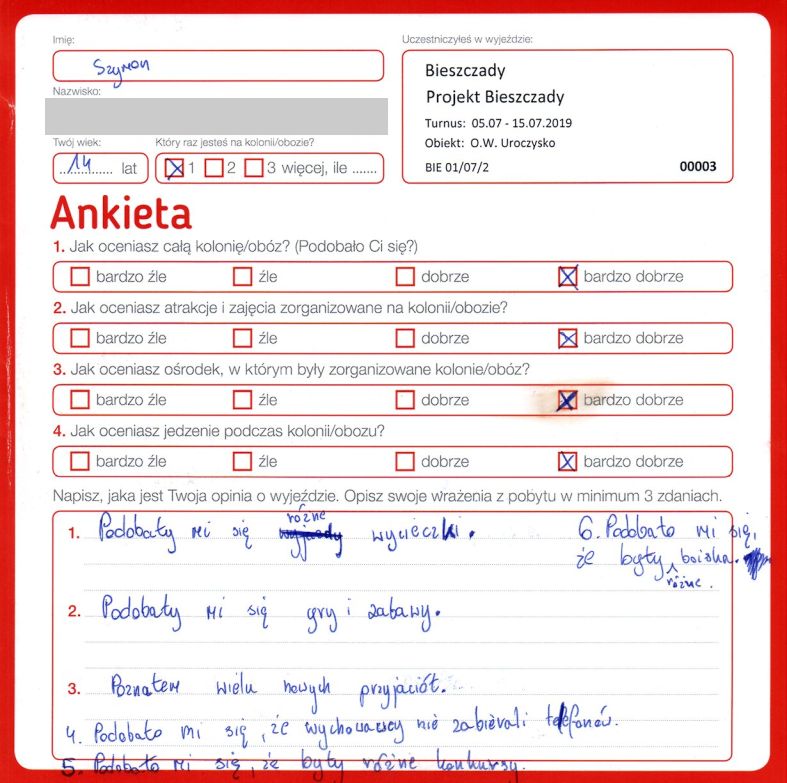 Imię:
Szymon
Nazwisko:
Twój wiek:
14 lat
Który raz jesteś na kolonii/obozie?
1 2 3 więcej, ile .......
Uczestniczyłeś w wyjeździe:
Bieszczady
Projekt Bieszczady
Turnus: 05.07 - 15.07.2019
Obiekt: O.W. Uroczysko
BIE 01/07/2 00003
Ankieta
1. Jak oceniasz całą kolonię/obóz? (Podobało Ci się?)
bardzo źle źle dobrze bardzo dobrze
2. Jak oceniasz atrakcje i zajęcia zorganizowane na kolonii/obozie?
bardzo źle źle dobrze bardzo dobrze
3. Jak oceniasz ośrodek, w którym były zorganizowane kolonie/obóz?
bardzo źle źle dobrze bardzo dobrze
4. Jak oceniasz jedzenie podczas kolonii/obozu?
bardzo źle źle dobrze bardzo dobrze
Napisz, jaka jest Twoja opinia o wyjeździe. Opisz swoje wrażenia z pobytu w minimum 3 zdaniach.
1. Podobały mi się różne wycieczki.
2. Podobały mi się gry i zabawy.
3. Poznałem wielu nowych przyjaciół.
4. Podobało mi się, że wychowawcy nie zabierali telefonów.
5. Podobało mi się, że były różne konkursy.
6. Podobało mi się,
że były różne boiska.